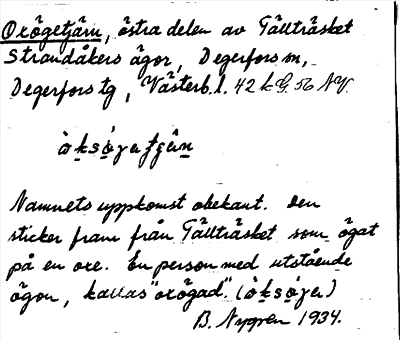 Oxögetjärn, östra delen av Tällträsket
Strandåkers ägor, Degerfors sn,
Degerfors tg, Västerb.l. 42 k G. 56 NV.
òksǫ́ɣatjä̂n
Namnets uppkomst obekant. Den
sticker fram från Tällträsket som ögat
på en oxe. En person med utstående
ögon, kallas "oxögad". (òksǫ́ɣa)
B. Nygren 1934.